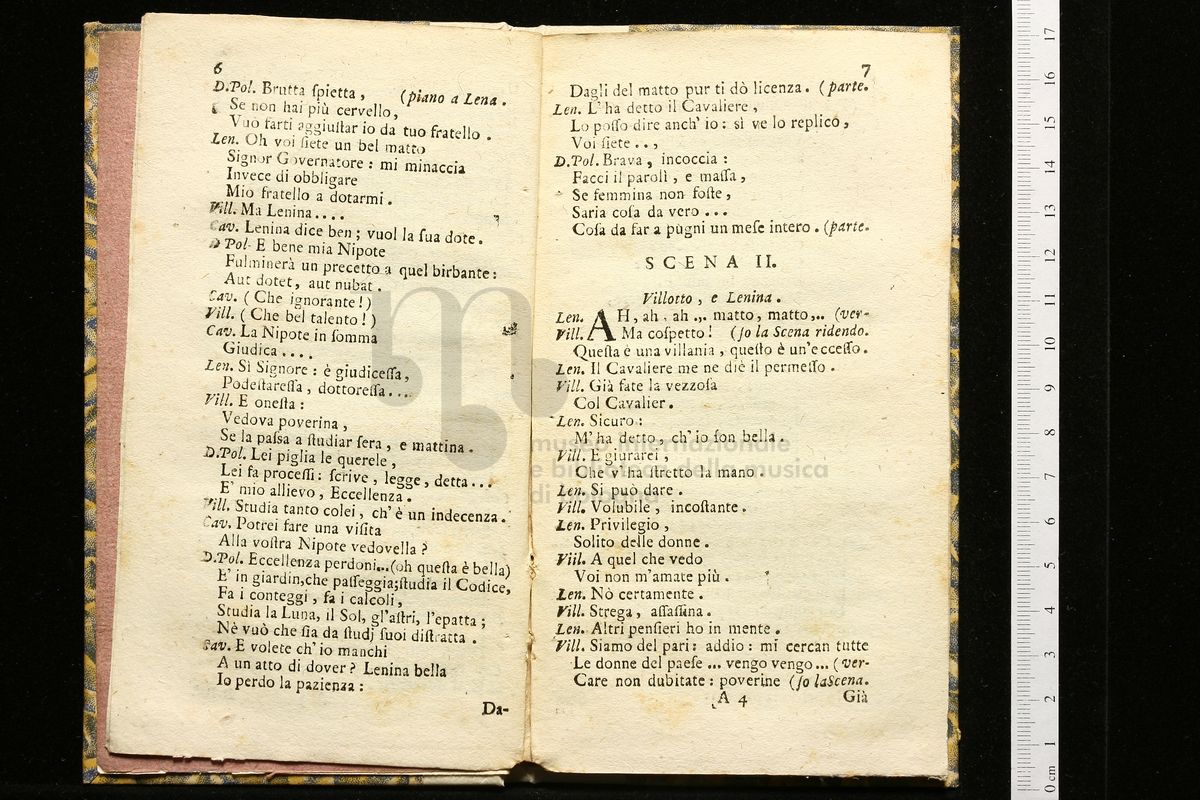 6
D.Pol. Brutta ſpietta, (piano a Lena.
Se non hai più cervello,
Vuò farti aggiuſtar io da tuo fratello.
Len. Oh voi ſiete un bel matto
Signor Governatore: mi minaccia
Invece di obbligare
Mio fratello a dotarmi.
Vill. Ma Lenina....
Cav. Lenina dice ben; vuol la ſua dote.
D Pol. E bene mia Nipote
Fulminerà un precetto a quel birbante:
Aut dotet, aut nubat.
Cav. (Che ignorante!)
Vill. (Che bel talento!)
Cav. La Nipote in ſomma
Giudica....
Len. Sì Signore: è giudiceſſa,
Podeſtareſſa, dottoreſſa...
Vill. E oneſta:
Vedova poverina,
Se la paſsa a ſtudiar ſera, e mattina.
D.Pol. Lei piglia le querele,
Lei fa proceſſi: ſcrive, legge, detta...
E' mio allievo, Eccellenza.
Vill. Studia tanto colei, ch'è un indecenza.
Cav. Potrei fare una viſita
Alla voſtra Nipote vedovella?
D.Pol. Eccellenza perdoni...(oh queſta è bella)
E' in giardin,che paſſeggia;ſtudia il Codice,
Fa i conteggi, fa i calcoli,
Studia la Luna, il Sol, gl'aſtri, l'epatta;
Nè vuò che ſia da ſtudj ſuoi diſtratta.
Cav. E volete ch'io manchi
A un atto di dover? Lenina bella
Io perdo la pazienza:
Da-
7
Dagli del matto pur ti dò licenza. (parte.
Len. L'ha detto il Cavaliere,
Lo poſſo dire anch'io: sì ve lo replico,
Voi ſiete..,
D.Pol. Brava, incoccia:
Facci il parolì, e maſſa,
Se femmina non foſte,
Saria coſa da vero...
Coſa da far a pugni un meſe intero. (parte.
SCENA II.
Villotto, e Lenina.
Len. AH, ah, ah... matto, matto... (ver-
Vill. Ma coſpetto! (ſo la Scena ridendo.
Queſta è una villania, queſto è un'ecceſſo.
Len. Il Cavaliere me ne diè il permeſſo.
Vill. Già fate la vezzoſa
Col Cavalier.
Len. Sicuro:
M'ha detto, ch'io ſon bella.
Vill. E giurarei,
Che v'ha ſtretto la mano.
Len. Si può dare.
Vill. Volubile, incoſtante.
Len. Privilegio,
Solito delle donne.
Viil. A quel che vedo
Voi non m'amate più.
Len. Nò certamente.
Vill. Strega, aſſaſſina.
Len. Altri penſieri ho in mente.
Vill. Siamo del pari: addio: mi cercan tutte
Le donne del paeſe... vengo vengo... (ver-
Care non dubitate: poverine (ſo laScena.
A 4 Già
museo internazionale
e biblioteca della musica
di